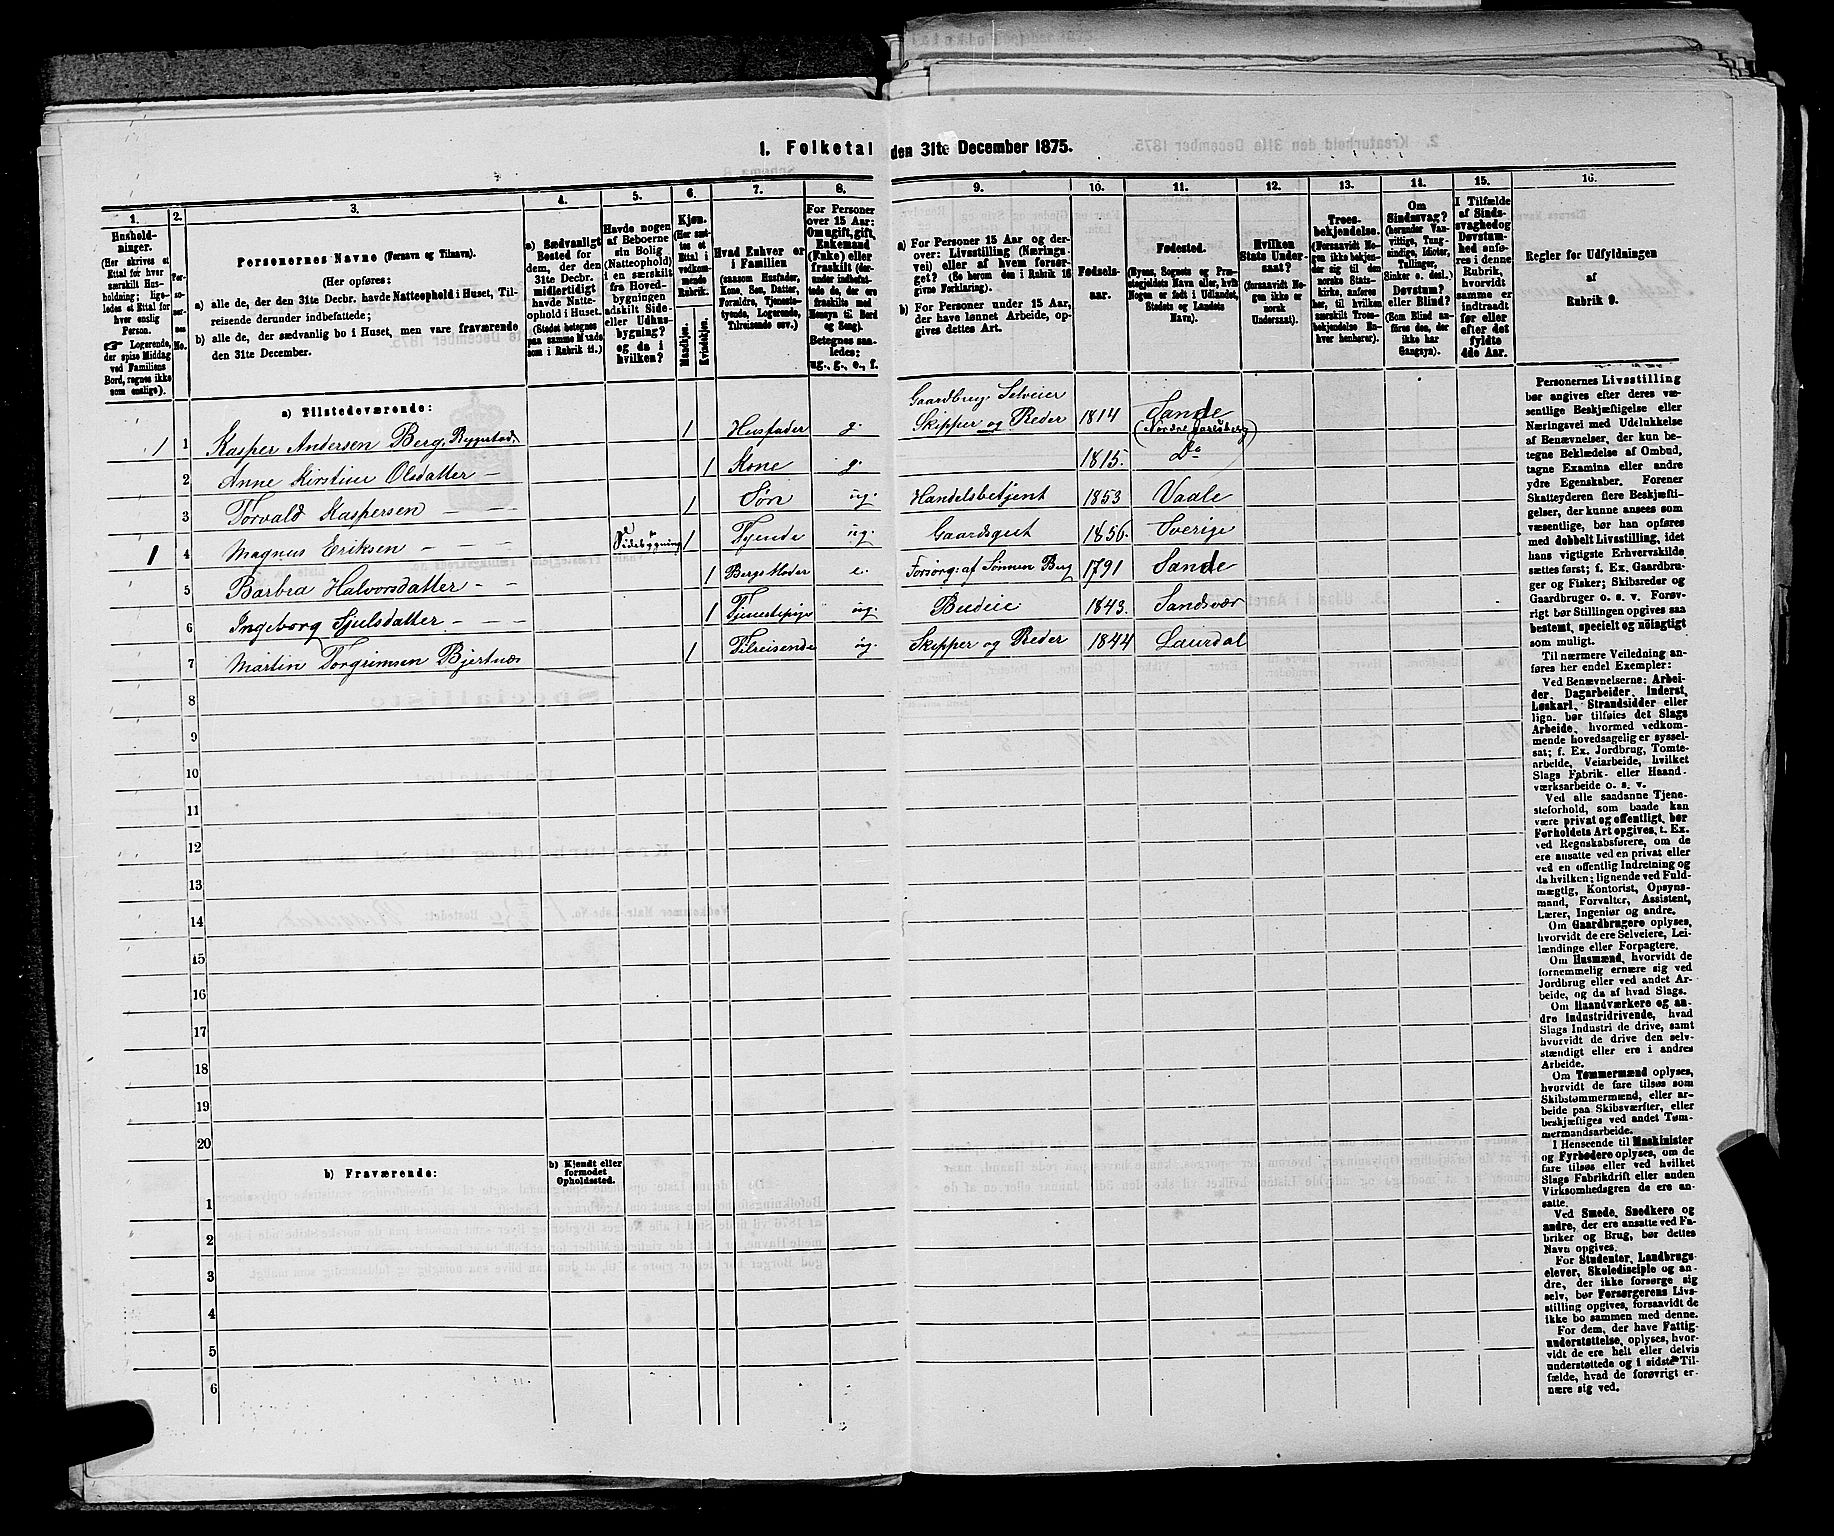 1. Folketal den 31te December 1875.
1.
Husholdninger.
(Her skrives et
Ettal for hver
særskilt Husholdning; ligeledes et Ettal for
hver enslig
Person.
☞ Logerende,
der spise Middag
ved Familiens
Bord, regnes ikke
som enslige).
2.
Personernes No.
3.
Personernes Navne (Fornavn og Tilnavn).
(Her opføres:
a) alle de, der den 31te Decbr. havde Natteophold i Huset, Tilreisende derunder indbefattede;
b) alle de, der sædvanlig bo i Huset, men vare fraværende
den 31te December.
4.
a) Sædvanligt
Bosted for
dem, der den
31te Decbr.
midlertidigt
havde Natteophold i Huset.
(Stedet betegnes
paa samme Maade
som i Rubrik 11.)
5.
Havde nogen
af Beboerne
sin Bolig
(Natteophold)
i en særskilt
fra Hovedbygningen
adskilt Side-
eller Udhusbygning?
og da i
hvilken?
6.
Kjøn.
(Her sættes et
Ettal i
vedkommende
Rubrik.
Mandkjøn.
Kvindekjøn.
7.
Hvad Enhver er
i Familien
(saasom Husfader,
Kone, Søn, Datter,
Forældre, Tjenestetyende, Logerende,
Tilreisende osv.)
8.
For Personer
over 15 Aar:
Om ugift, gift,
Enkemand
(Enke) eller
fraskilt (derunder indbefattede de, der ere
fraskilte med
Hensyn til Bord
og Seng).
Betegnes saaledes:
ug., g., e., f.
9.
a) For Personer 15 Aar og derover: Livsstilling (Næringsvei) eller af hvem forsørget? (Se herom den i Rubrik 16
givne Forklaring).
b) For Personer under 15 Aar,
der have lønnet Arbeide, opgives dettes Art.
10.
Fødselsaar.
11.
Fødested.
(Byens, Sognets og Præstegjeldets Navn eller, hvis
Nogen er født i Udlandet,
Stedets og Landets
Navn).
12.
Hvilken
Stats Undersaat?
(forsaavidt Nogen ikke er
norsk
Undersaat).
13.
Troesbekjendelse.
(Forsaavidt Nogen ikke bekjender sig til den
norske Statskirke, anføres her, til hvilken
særskilt Troesbekjendelse Enhver henhører).
14.
Om
Sindssvag?
(herunder Vanvittige, Tungsindige, Idioter,
Tullinger,
Sinker o. desl.)
Døvstum?
eller Blind?
(Som Blind anføres den, der
ikke har
Gangsyn).
15.
I Tilfælde
af Sindssvaghed og
Døvstumhed anføres i denne
Rubrik,
hvorvidt
samme er
indtraadt
før eller
efter det
fyldte
4de Aar.
16.
Regler for Udfyldningen
af
Rubrik 9.
a) Tilstedeværende:
1 1 Kasper Andersen Berg, Ryggstad 1 Husfader g. Gaardbrug. Selveier Skipper og Reder 1814 Sande (Nordre Jarlsberg)
2 Anne Kirstine Olsdatter — 1 Kone g. 1815. Do
3 Torvald Kaspersen — — 1 Søn ug. Handelsbetjent 1853 Vaale
1 4 Magnus Eriksen — — — Sidebygning 1 Tyende ug. Gaardsgut 1856. Sverige
5 Barbra Halvorsdatter — — 1 Bergs Moder e. Forsørg: af Sønnen Berg 1791 Sande
6 Ingeborg Sjulsdatter — — — 1 Tjenestepige ug. Budeie 1843. Sandsvær
7 Martin Torgrimsen Bjertnæs 1 Tilreisende ug. Skipper og Reder 1844 Laurdal
8
9
10
11
12
13
14
15
16
17
18
19
20
b) Fraværende:
b) Kjendt eller
formodet
Opholdssted.
1
2
3
4
5
6
Personernes Livsstilling
bør angives efter deres væsentlige Beskjæftigelse eller
Næringsvei med Udelukkelse
af Benævnelser, der kun betegne Beklædelse af Ombud,
tagne Examina eller andre
ydre Egenskaber. Forener
Skatteyderen flere Beskjæftigelser, der kunne ansees som
væsentlige, bør han opføres
med dobbelt Livsstilling, idet
hans vigtigste Erhvervskilde
sættes først; f. Ex. Gaardbruger og Fisker; Skibsreder og
Gaardbruger o. s. v. Forøvrigt bør Stillingen opgives saa
bestemt, specielt og nöiagtigt
som muligt.
Til nærmere Veiledning anføres her endel Exempler:
Ved Benævnelserne: Arbeider, Dagarbeider, Inderst,
Løskarl, Strandsidder eller
lign. bør tilføies det Slags
Arbeide, hvormed vedkommende hovedsagelig er sysselsat; f. Ex. Jordbrug, Tomtearbeide, Veiarbeide, hvilket
Slags Fabrik- eller Haandværksarbeide o. s. v.
Ved alle saadanne Tjenesteforhold, som baade kan
være privat og offentligt, bør
Forholdets Art opgives, t. Ex.
ved Regnskabsførere, om de
ere ansatte ved en privat eller
ved en offentlig Indretning og
da hvilken; lignende ved Fuldmægtig, Kontorist, Opsynsmand, Forvalter, Assistent,
Lærer, Ingeniør og andre.
Om Gaardbrugere oplyses,
hvorvidt de ere Selveiere, Leilændinge eller Forpagtere.
Om Husmænd, hvorvidt de
fornemmelig ernære sig ved
Jordbrug eller ved andet Arbeide, og da af hvad Slags.
Om Haandværkere og andre Industridrivende, hvad
Slags Industri de drive, samt
hvorvidt de drive den selvstændigt eller ere i andres
Arbeide.
Om Tømmermænd oplyses,
hvorvidt de fare tilsøs som
Skibstømmermænd, eller arbeide paa Skibsværfter, eller
beskjæftiges ved andet Tømmermandsarbeide.
I Henseende til Maskinister
og Fyrbødere oplyses, om de
fare tilsøs eller ved hvilket
Slags Fabrikdrift eller anden
Virksomhedsgren de ere ansatte.
Ved Smede, Snedkere og
andre, der ere ansatte ved Fabriker og Brug, bør dettes
Navn opgives.
For Studenter, Landbrugselever, Skoledisciple og andre, der ikke forsørge sig
selv, bør Forsørgerens Livsstilling opgives, forsaavidt de
ikke bo sammen med denne.
For dem, der have Fattigunderstøttelse, oplyses, hvorvidt de ere helt eller delvis
understøttede og i sidste Tilfælde, hvad de forøvrigt ernære sig ved.